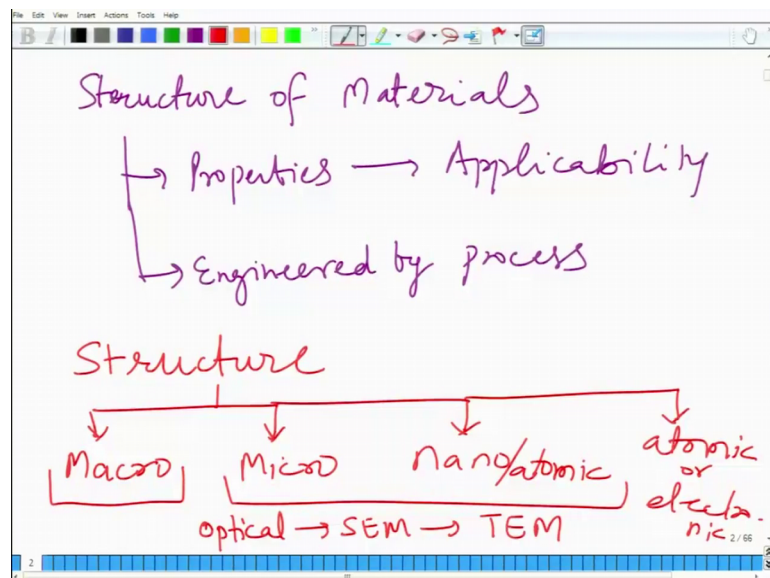 File Edit View Insert Actions Tools Help
B I
Structure of Materials
Properties → Applicability
Engineered by process
Structure
Macro Micro nano/atomic atomic
or
electro-
nic
optical → SEM → TEM
2/66
2